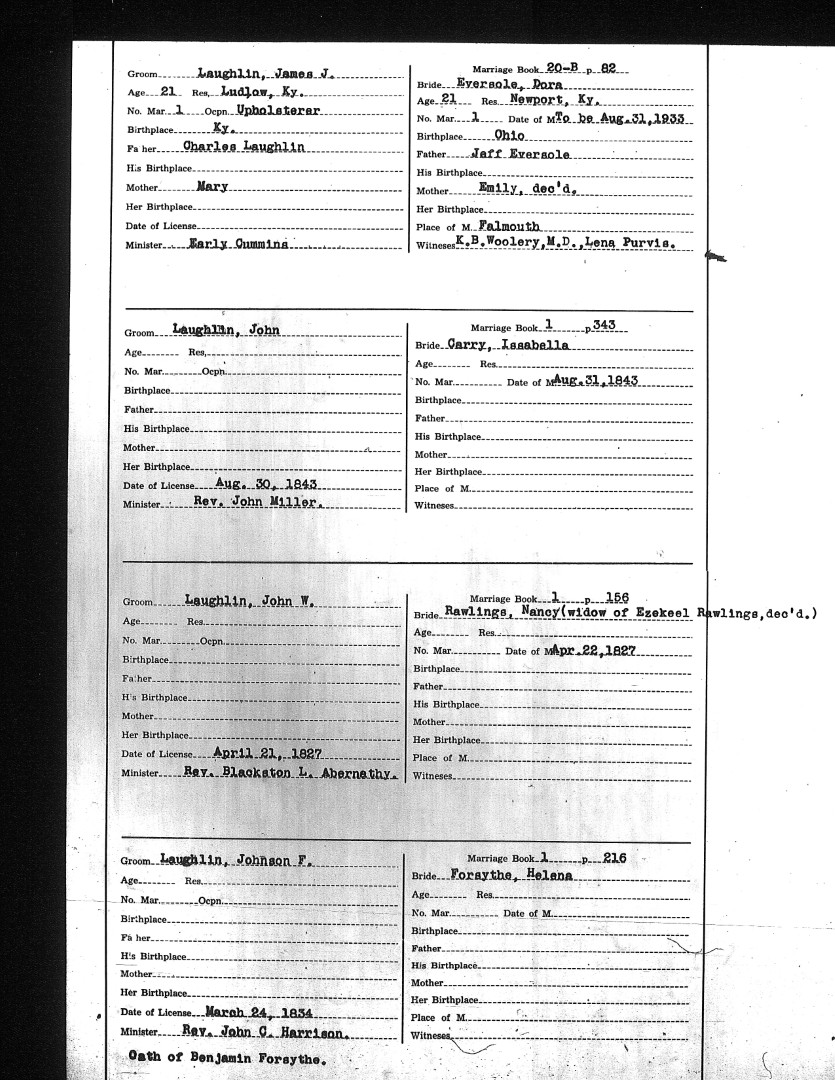 Groom Laughlin, James J.
Age 21 Res. Ludlow, Ky.
No. Mar. 1 Ocpn. Upholsterer
Birthplace Ky.
Fa her Charles Laughlin
His Birthplace
Mother Mary
Her Birthplace
Date of License
Minister Early Cummins
Marriage Book 20-B p. 82
Bride Eversole, Dora
Age 21 Res. Newport, Ky.
No. Mar. 1 Date of M To be Aug. 31, 1933
Birthplace Ohio
Father Jeff Eversole
His Birthplace
Mother Emily, dec'd.
Her Birthplace
Place of M. Falmouth
Witnesses K.B.Woolery, M.D., Lena Purvis.
Groom Laughlin, John
Age Res.
No. Mar. Ocpn.
Birthplace
Father
His Birthplace
Mother
Her Birthplace
Date of License Aug. 30, 1843
Minister Rev. John Miller.
Marriage Book 1 p. 343
Bride Carry, Issabella
Age Res.
No. Mar. Date of M Aug. 31, 1843
Birthplace
Father
His Birthplace
Mother
Her Birthplace
Place of M.
Witnesses
Groom Laughlin, John W.
Age Res.
No. Mar. Ocpn.
Birthplace
Father
His Birthplace
Mother
Her Birthplace
Date of License April 21, 1827
Minister Rev. Blackston L. Abernathy.
Marriage Book 1 p. 156
Bride Rawlings, Nancy(widow of Ezekeel Rawlings, dec'd.)
Age Res.
No. Mar. Date of M Apr. 22, 1827
Birthplace
Father
His Birthplace
Mother
Her Birthplace
Place of M.
Witnesses
Groom Laughlin, Johnson F.
Age Res.
No. Mar. Ocpn.
Birthplace
Fa her
His Birthplace
Mother
Her Birthplace
Date of License March 24, 1834
Minister Rev. John C. Harrison.
Oath of Benjamin Forsythe.
Marriage Book 1 p. 216
Bride Forsythe, Helena
Age Res.
No. Mar. Date of M.
Birthplace
Father
His Birthplace
Mother
Her Birthplace
Place of M.
Witnesses